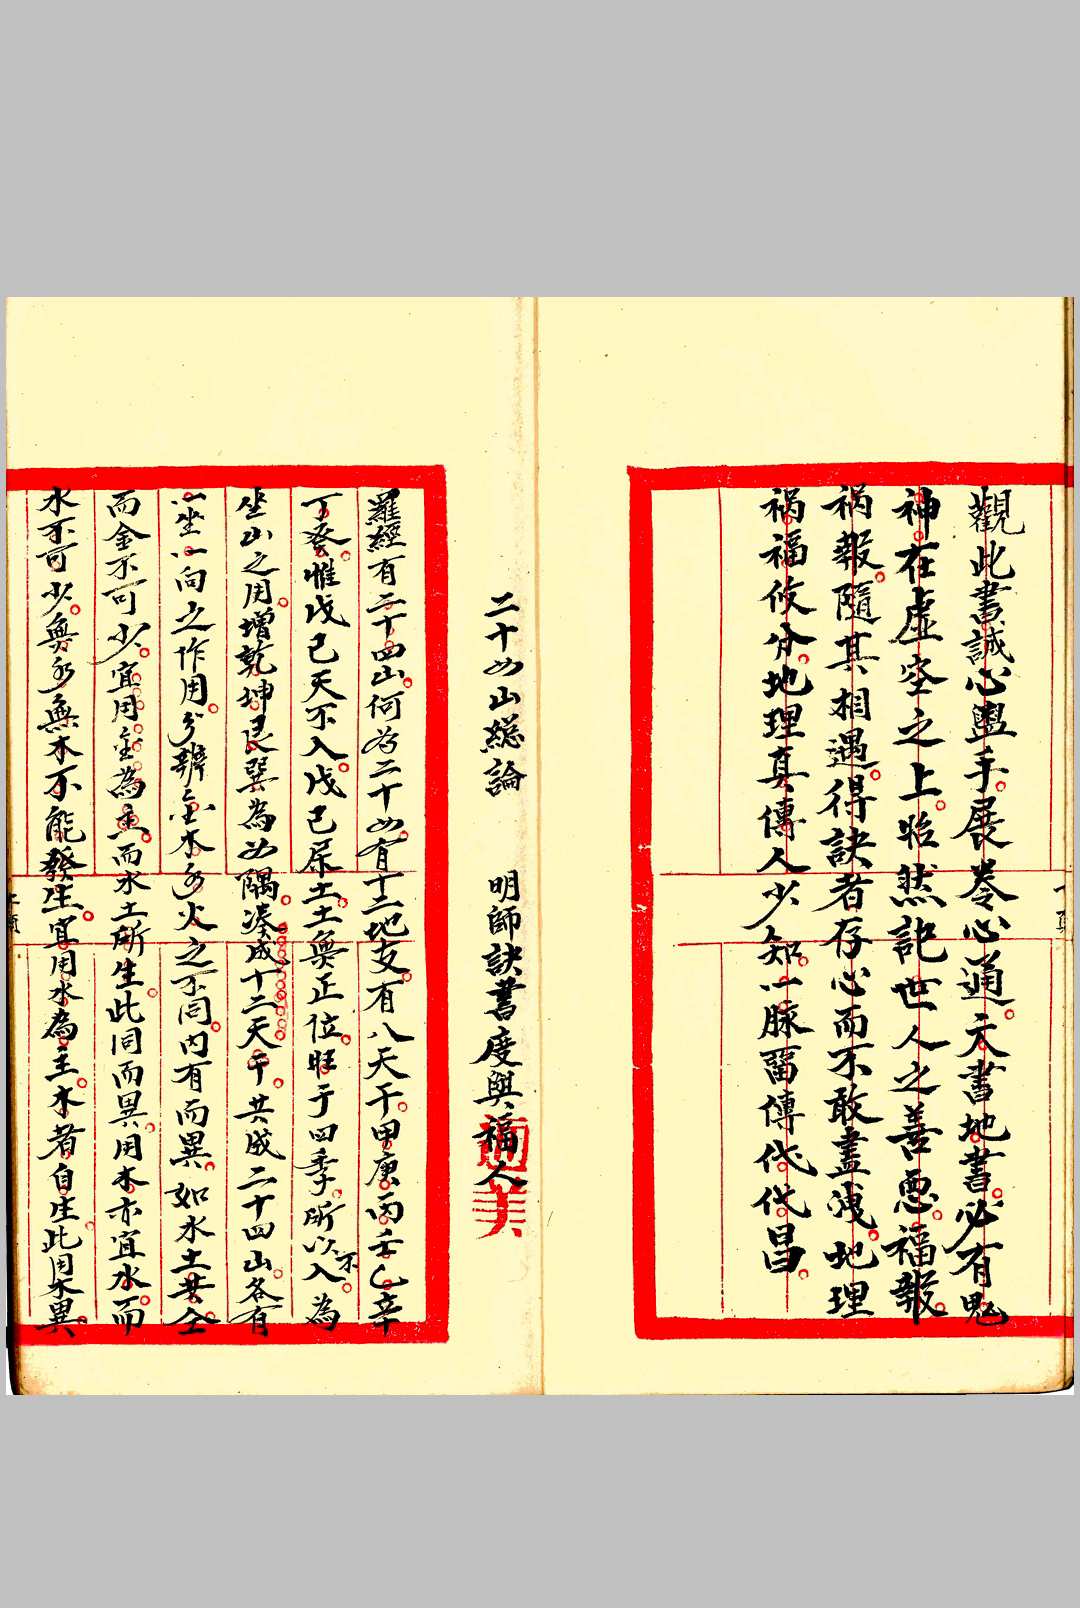 觀此書誠心盥手展卷心通天書地書必有鬼
神在虛空之上昭然記世人之善惡福報
禍報隨其相遇得訣者存心而不敢盡洩地理
禍福攸分地理真傳人少知一脉畱傳代代昌
二十四山総論 明師訣書度與福人
羅經有二十四山何為二十四有十二地支有八天干甲庚丙壬乙辛
丁癸惟戊己天不入戊己屎土土無正位旺于四季所以不入為
坐山之用增乾坤艮巽為四隅湊成十二天干共成二十四山各有
一坐一向之作用分辨金木水火之不同內有而異如水土共仝
而金不可少宜用金為主而水土所生此同而異用木亦宜水而
水不可少無水無木不能發生宜用水為主木者自生此用異